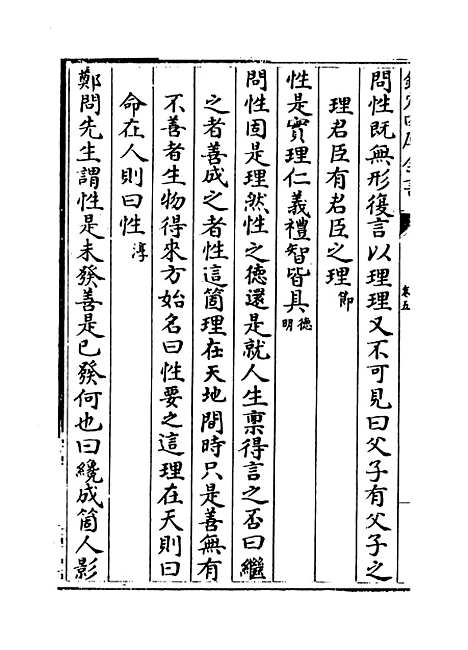 問性既無形復言以理理又不可見曰父子有父子之
理君臣有君臣之理節
性是實理仁義禮智皆具德明
問性固是理然性之德還是就人生稟得言之否曰繼
之者善成之者性這箇理在天地間時只是善無有
不善者生物得來方始名曰性要之這理在天則曰
命在人則曰性淳
鄭問先生謂性是未發善是已發何也曰纔成箇人影
卷五